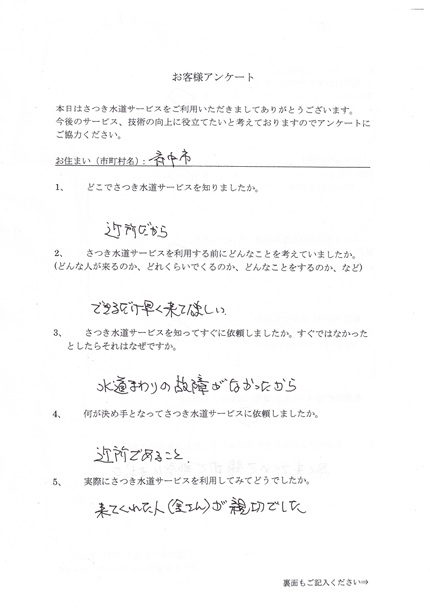 お客様アンケート
本日はさつき水道サービスをご利用いただきましてありがとうございます。
今後のサービス、技術の向上に役立てたいと考えておりますのでアンケートに
ご協力ください。
お住まい（市町村名）：府中市
1、 どこでさつき水道サービスを知りましたか。
近所だから
2、 さつき水道サービスを利用する前にどんなことを考えていましたか。
(どんな人が来るのか、どれくらいでくるのか、どんなことをするのか、など)
できるだけ早く来て欲しい
3、 さつき水道サービスを知ってすぐに依頼しましたか。すぐではなかった
としたらそれはなぜですか。
水道まわりの故障がなかったから
4、 何が決め手となってさつき水道サービスに依頼しましたか。
近所であること
5、 実際にさつき水道サービスを利用してみてどうでしたか。
来てくれた人(さん)が親切でした
裏面もご記入ください⇒